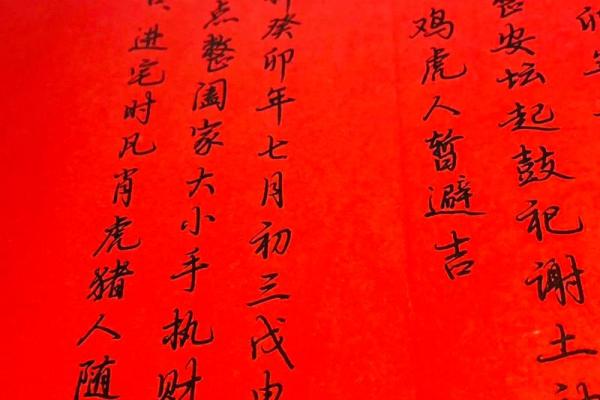 卯年
安坛起鼓祀谢土
鸡虎人暂避吉
癸卯年七月初三戊申
点整阖家大小手执财
进宅时凡肖虎猪人随